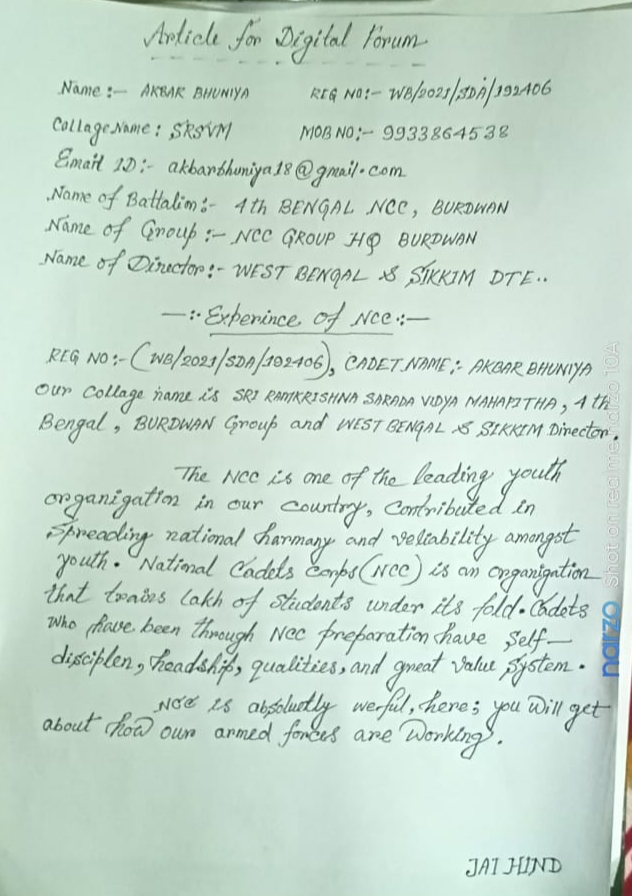 Article for Digital Forum
Name:- AKBAR BHUNIYA REG NO:- WB/2021/SDA/192406
Collage Name: SRSVM MOB NO:- 9933864538
Email ID:- akbarbhuniya18@gmail.com
Name of Battalion:- 4th BENGAL NCC, BURDWAN
Name of Group:- NCC GROUP HQ BURDWAN
Name of Director:- WEST BENGAL & SIKKIM DTE..
—:- Experince of NCC:—
REG NO:- (WB/2021/SDA/192406), CADET NAME:- AKBAR BHUNIYA
Our Collage name is SRI RAMKRISHNA SARADA VIDYA MAHAPITHA, 4th
Bengal, BURDWAN Group and WEST BENGAL & SIKKIM Director.
The NCC is one of the leading youth
organigation in our country, Contributed in
Spreading national harmany and veliability amongst
youth. National Cadets Corps (NCC) is an organigation
that trains lakh of Students under its fold. Cadets
who have been through NCC preparation have Self-
disciplen, headship, qualities, and great value System.
NCC is absolutly werful, here; you will get
about how our armed forces are working.
JAI HIND
narzo Shot on realme narzo 10A